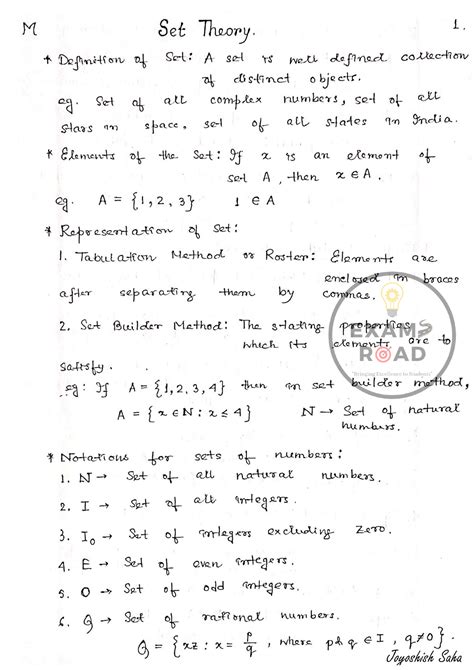 M Set Theory. 1.
* Definition of Set: A set is well defined collection
of distinct objects.
eg. Set of all complex numbers, set of all
stars in space, set of all states in India.
* Elements of the Set: If x is an element of
set A, then x ∈ A.
eg. A = {1, 2, 3} 1 ∈ A
* Representation of Set:
1. Tabulation Method or Roster: Elements are
enclosed in braces
after separating them by commas.
2. Set Builder Method: The stating properties
which its elements are to
satisfy.
eg: If A = {1, 2, 3, 4} then in set builder method,
A = {x ∈ N : x ≤ 4} N → Set of natural
numbers.
* Notations for sets of numbers:
1. N → Set of all natural numbers.
2. I → Set of all integers.
3. I₀ → Set of integers excluding zero.
4. E → Set of even integers.
5. O → Set of odd integers.
6. Q → Set of rational numbers.
Q = {xz : x = p/q, where p & q ∈ I, q ≠ 0}.
Joyoshish Saha
EXAMS
ROAD
"Bringing Excellence in Students"